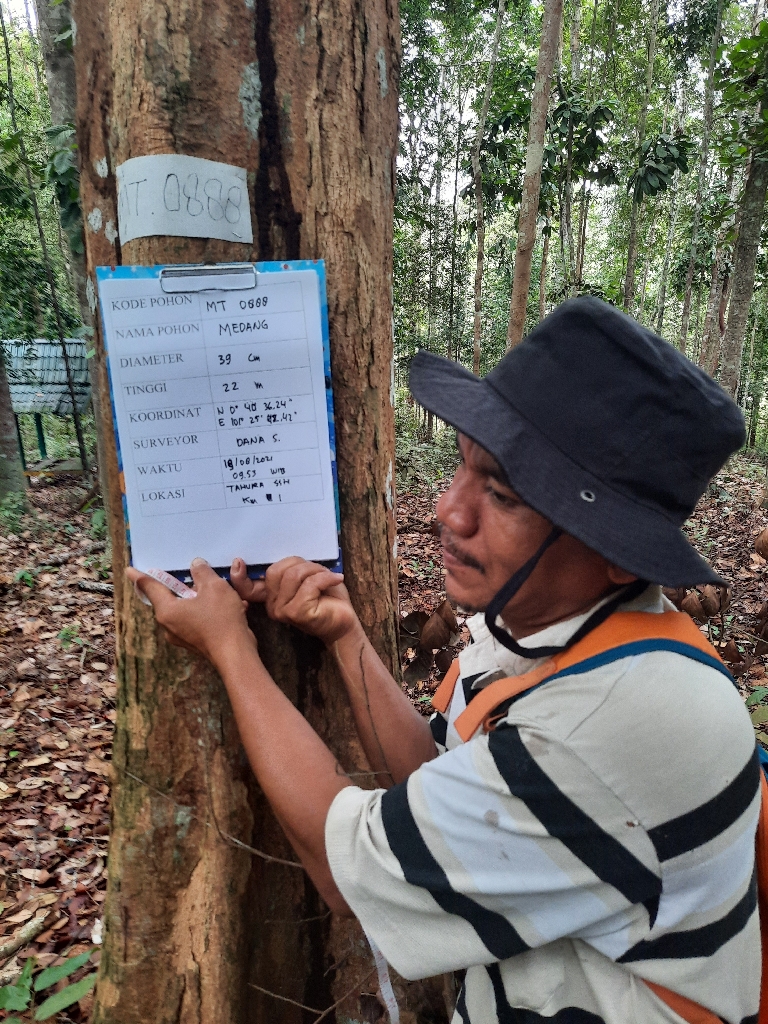 MT. 0888
KODE POHON MT 0888
NAMA POHON MEDANG
DIAMETER 39 Cm
TINGGI 22 m
KOORDINAT N 0° 40' 36.24"
E 101° 25' 42.42"
SURVEYOR DANA S.
WAKTU 18/08/2021
09.53 WIB
LOKASI TAHURA SSH
Km 1